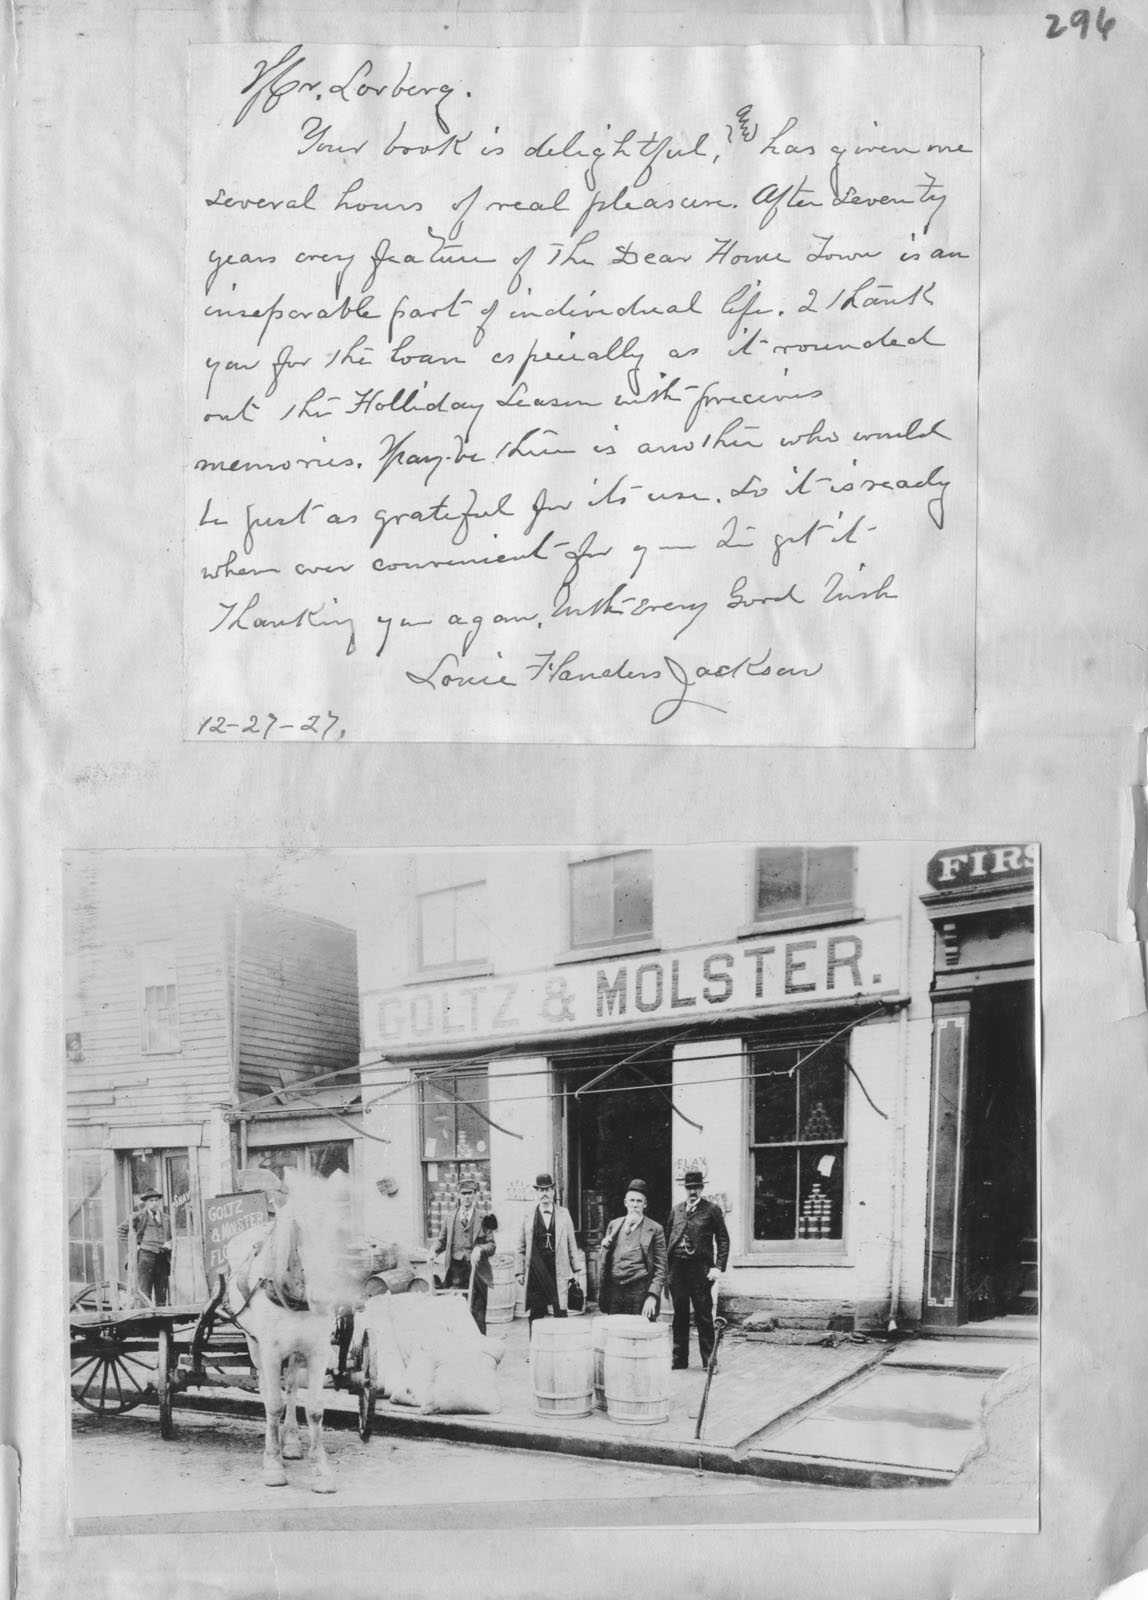 296
Mr. Lorberg.
Your book is delightful, and has given me
several hours of real pleasure. After seventy
years every feature of the Dear Home Town is an
inseparable part of individual life. I thank
you for the loan especially as it rounded
out the Holliday Season with precious
memories. May-be there is another who would
be just as grateful for its use. So it is ready
when ever convenient for you to get it
Thanking you again, With Every Good Wish
Louie Flanders Jackson
12-27-27.
FIRS
GOLTZ & MOLSTER.
GOLTZ
& MOLSTER
FLO
FLAX